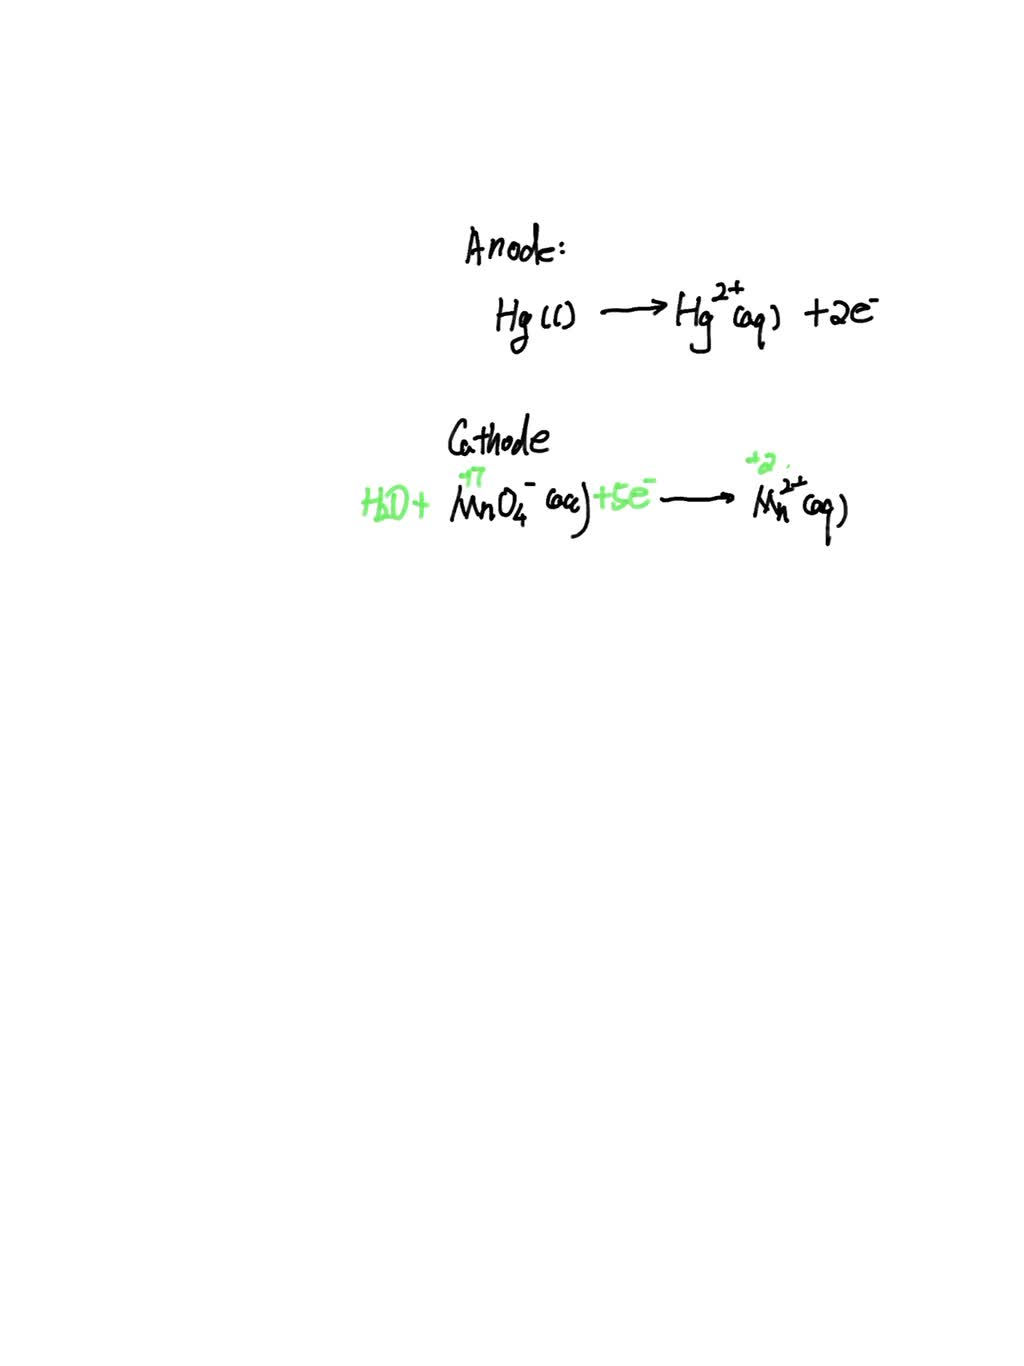 Anode:
Hg(l) → Hg²⁺(aq) + 2e⁻
Cathode
+7 +2
H₂O + MnO₄⁻(aq) + 5e⁻ → Mn²⁺(aq)